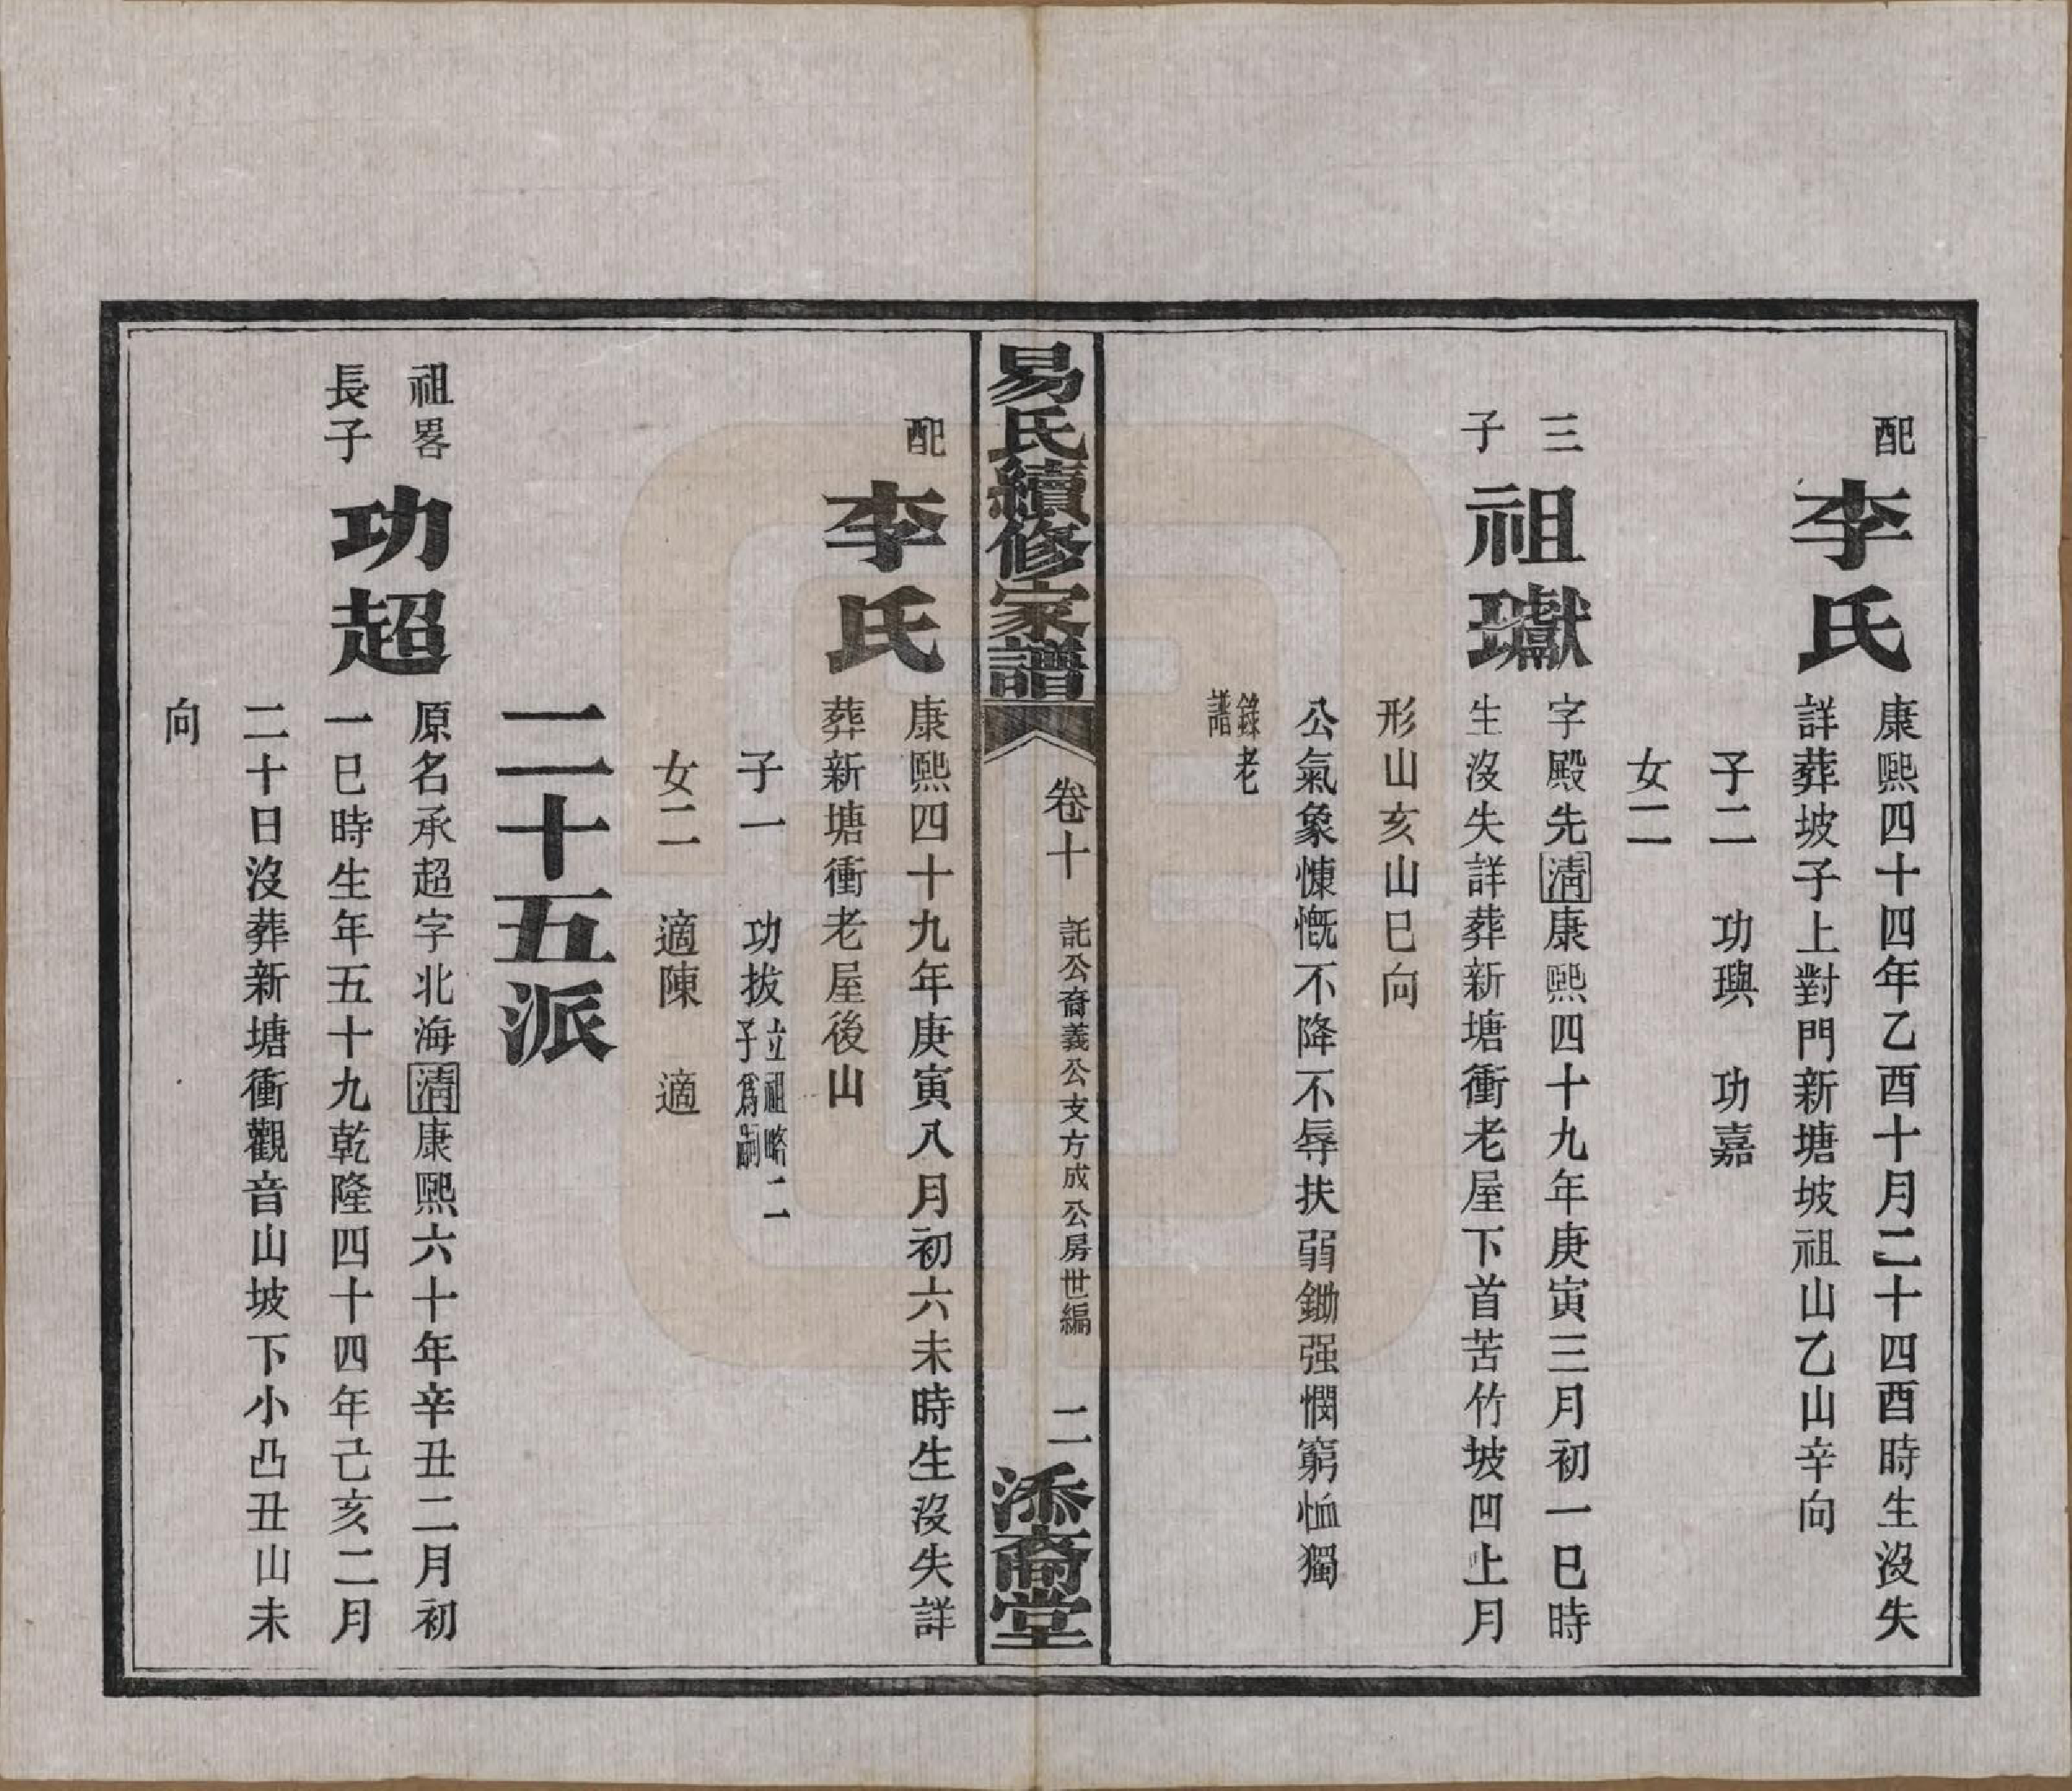 配
李氏
康熙四十四年乙酉十月二十四酉時生沒失
詳葬坡子上對門新塘坡祖山乙山辛向
子二　功璵　功嘉
女二
三子
祖瓛
字殿先清康熙四十九年庚寅三月初一巳時
生沒失詳葬新塘衝老屋下首苦竹坡凹上月
形山亥山巳向
公氣象慷慨不降不辱扶弱鋤强憫窮恤獨
錄老
譜
易氏續修家譜
卷十
託公裔義公支方成公房世編
二
添裔堂
配
李氏
康熙四十九年庚寅八月初六未時生沒失詳
葬新塘衝老屋後山
子一　功拔
立祖略二
子爲嗣
女二　適陳　適
二十五派
祖畧
長子
功超
原名承超字北海清康熙六十年辛丑二月初
一巳時生年五十九乾隆四十四年己亥二月
二十日沒葬新塘衝觀音山坡下小凸丑山未
向